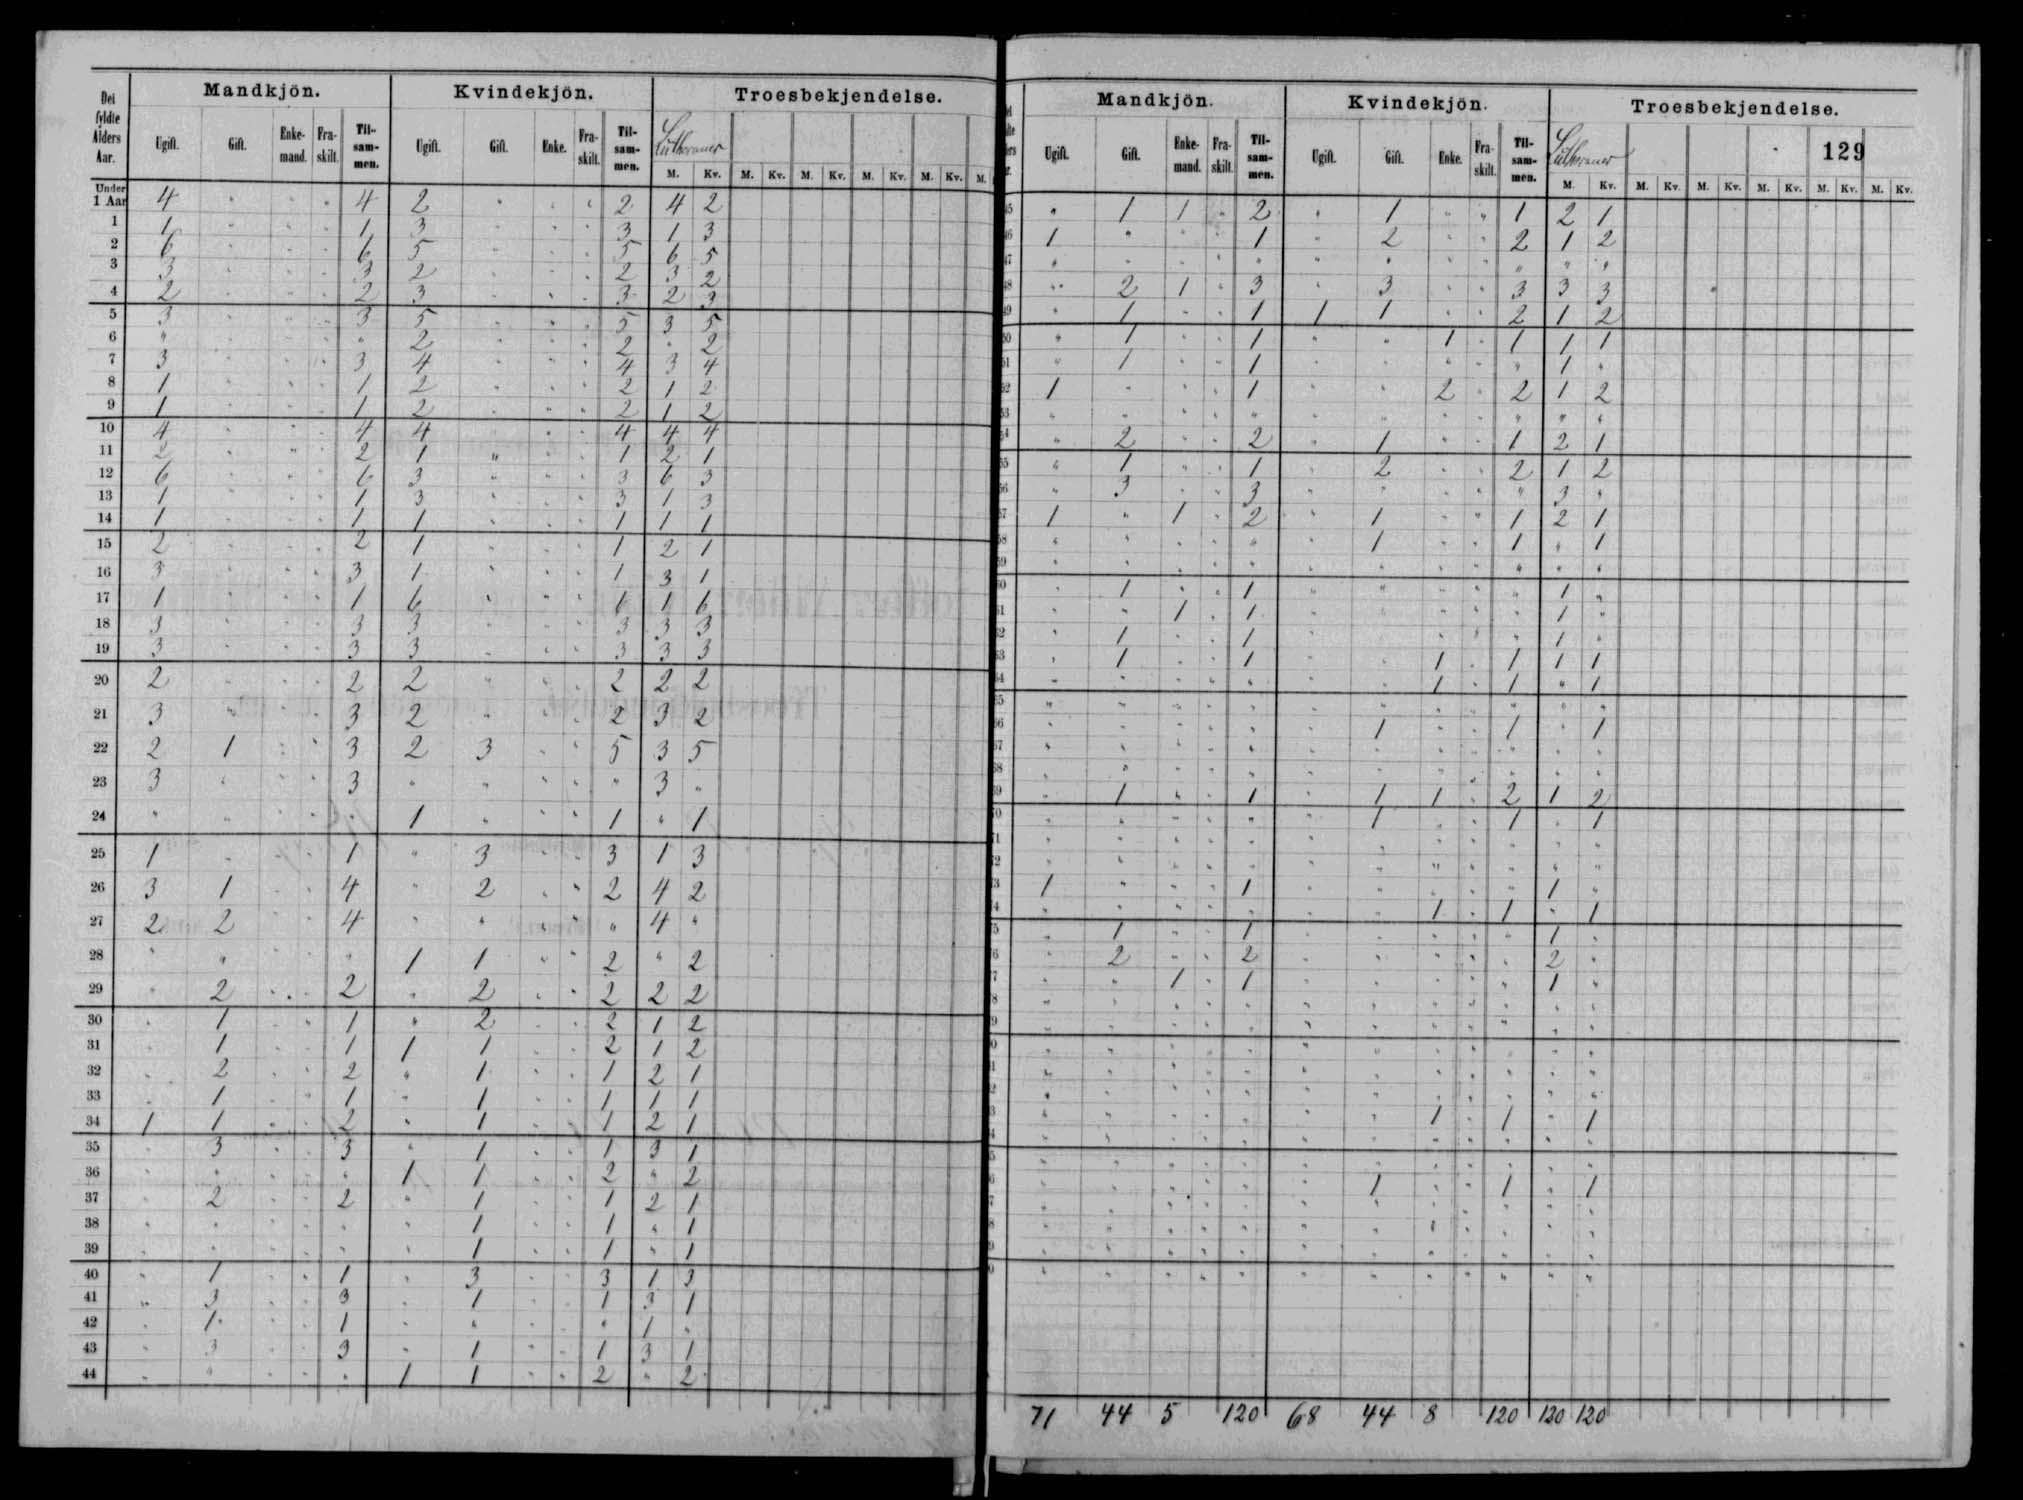 Mandkjön. Kvindekjön. Troesbekjendelse.
Det fyldte Alders Aar. Ugift. Gift. Enke-mand. Fra-skilt. Til-sam-men. Ugift. Gift. Enke. Fra-skilt. Til-sam-men. Lutheraner
M. Kv. M. Kv. M. Kv. M. Kv. M. Kv. M.
Under 1 Aar 4 " " " 4 2 " " " 2 4 2
1 1 " " " 1 3 " " " 3 1 3
2 6 " " " 6 5 " " " 5 6 5
3 3 " " " 3 2 " " " 2 3 2
4 2 " " " 2 3 " " " 3 2 3
5 3 " " " 3 5 " " " 5 3 5
6 " " " " " 2 " " " 2 " 2
7 3 " " " 3 4 " " " 4 3 4
8 1 " " " 1 2 " " " 2 1 2
9 1 " " " 1 2 " " " 2 1 2
10 4 " " " 4 4 " " " 4 4 4
11 2 " " " 2 1 " " " 1 2 1
12 6 " " " 6 3 " " " 3 6 3
13 1 " " " 1 3 " " " 3 1 3
14 1 " " " 1 1 " " " 1 1 1
15 2 " " " 2 1 " " " 1 2 1
16 3 " " " 3 1 " " " 1 3 1
17 1 " " " 1 6 " " " 6 1 6
18 3 " " " 3 3 " " " 3 3 3
19 3 " " " 3 3 " " " 3 3 3
20 2 " " " 2 2 " " " 2 2 2
21 3 " " " 3 2 " " " 2 3 2
22 2 1 " " 3 2 3 " " 5 3 5
23 3 " " " 3 " " " " " 3 "
24 " " " " " 1 " " " 1 " 1
25 1 " " " 1 " 3 " " 3 1 3
26 3 1 " " 4 " 2 " " 2 4 2
27 2 2 " " 4 " " " " " 4 "
28 " " " " " 1 1 " " 2 " 2
29 " 2 " " 2 " 2 " " 2 2 2
30 " 1 " " 1 " 2 " " 2 1 2
31 " 1 " " 1 1 1 " " 2 1 2
32 " 2 " " 2 " 1 " " 1 2 1
33 " 1 " " 1 " 1 " " 1 1 1
34 1 1 " " 2 " 1 " " 1 2 1
35 " 3 " " 3 " 1 " " 1 3 1
36 " " " " " 1 1 " " 2 " 2
37 " 2 " " 2 " 1 " " 1 2 1
38 " " " " " " 1 " " 1 " 1
39 " " " " " " 1 " " 1 " 1
40 " 1 " " 1 " 3 " " 3 1 3
41 " 3 " " 3 " 1 " " 1 3 1
42 " 1 " " 1 " " " " " 1 "
43 " 3 " " 3 " 1 " " 1 3 1
44 " " " " " 1 1 " " 2 " 2
Mandkjön. Kvindekjön. Troesbekjendelse.
129
Ugift. Gift. Enke-mand. Fra-skilt. Til-sam-men. Ugift. Gift. Enke. Fra-skilt. Til-sam-men. Lutheraner
M. Kv. M. Kv. M. Kv. M. Kv. M. Kv. M. Kv.
5 " 1 1 " 2 " 1 " " 1 2 1
6 1 " " " 1 " 2 " " 2 1 2
7 " " " " " " " " " " " "
8 " 2 1 " 3 " 3 " " 3 3 3
9 " 1 " " 1 1 1 " " 2 1 2
0 " 1 " " 1 " " 1 " 1 1 1
1 " 1 " " 1 " " " " " 1 "
2 1 " " " 1 " " 2 " 2 1 2
3 " " " " " " " " " " " "
4 " 2 " " 2 " 1 " " 1 2 1
5 " 1 " " 1 " 2 " " 2 1 2
6 " 3 " " 3 " " " " " 3 "
7 1 " 1 " 2 " 1 " " 1 2 1
8 " " " " " " 1 " " 1 " 1
9 " " " " " " " " " " " "
0 " 1 " " 1 " " " " " 1 "
1 " " 1 " 1 " " " " " 1 "
2 " 1 " " 1 " " " " " 1 "
3 " 1 " " 1 " " 1 " 1 1 1
4 " " " " " " " 1 " 1 " 1
5 " " " " " " " " " " " "
6 " " " " " " 1 " " 1 " 1
7 " " " " " " " " " " " "
8 " " " " " " " " " " " "
9 " 1 " " 1 " 1 1 " 2 1 2
0 " " " " " " 1 " " 1 " 1
1 " " " " " " " " " " " "
2 " " " " " " " " " " " "
3 1 " " " 1 " " " " " 1 "
4 " " " " " " " 1 " 1 " 1
5 " 1 " " 1 " " " " " 1 "
6 " 2 " " 2 " " " " " 2 "
7 " " 1 " 1 " " " " " 1 "
8 " " " " " " " " " " " "
9 " " " " " " " " " " " "
0 " " " " " " " " " " " "
1 " " " " " " " " " " " "
2 " " " " " " " " " " " "
3 " " " " " " " 1 " 1 " 1
4 " " " " " " " " " " " "
5 " " " " " " " " " " " "
6 " " " " " " 1 " " 1 " 1
7 " " " " " " " " " " " "
8 " " " " " " " " " " " "
9 " " " " " " " " " " " "
0 " " " " " " " " " " " "
71 44 5 120 68 44 8 120 120 120